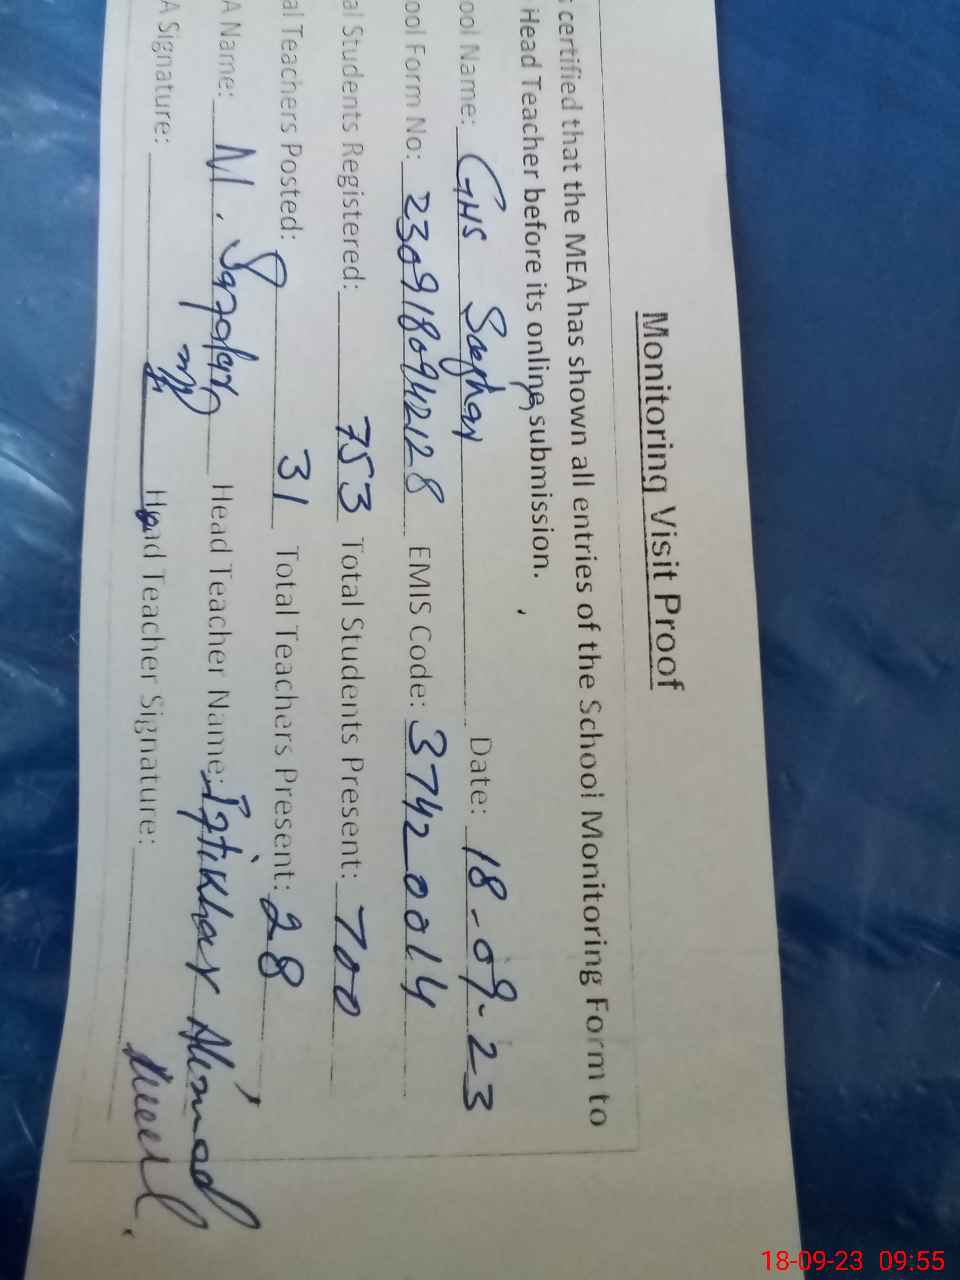 Monitoring Visit Proof
s certified that the MEA has shown all entries of the School Monitoring Form to
Head Teacher before its online submission.
ool Name: GHS Saghar Date: 18-09-23
ool Form No: 230918094128 EMIS Code: 37420014
al Students Registered: 753 Total Students Present: 700
al Teachers Posted: 31 Total Teachers Present: 28
A Name: M. Head Teacher Name: Iftikhar Ahmad
A Signature: Head Teacher Signature:
18-09-23 09:55